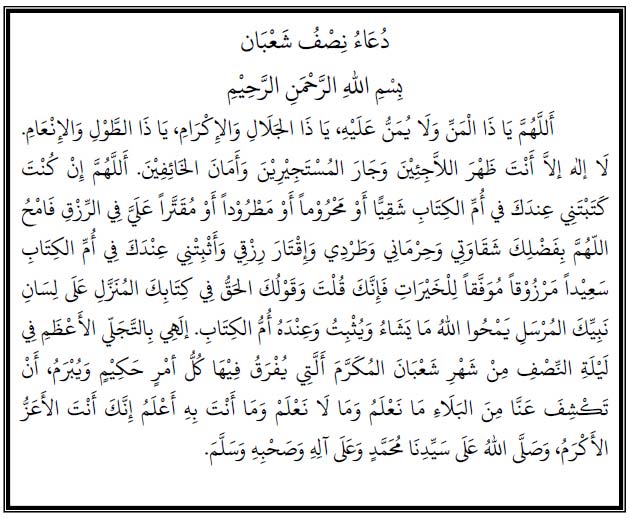 دُعَاءُ نِصْفُ شَعْبَان
بِسْمِ اللهِ الرَّحْمَنِ الرَّحِيْمِ
أَللَّهُمَّ يَا ذَا الْمَنِّ وَلَا يُمَنُّ عَلَيْهِ، يَا ذَا الجَلَالِ وَالإِكْرَامِ، يَا ذَا الطَّوْلِ وَالإِنْعَامِ.
لَا إِلهَ إِلاَّ أَنْتَ ظَهْرَ اللاَّجِئِيْنَ وَجَارَ المُسْتَجِيْرِيْنَ وَأَمَانَ الخَائِفِيْنَ. أَللَّهُمَّ إِنْ كُنْتَ
كَتَبْتَنِي عِنْدَكَ فِي أُمِّ الكِتَابِ شَقِيًّا أَوْ مَحْرُوْماً أَوْ مَطْرُوْداً أَوْ مُقَتَّراً عَلَيَّ فِي الرِّزْقِ فَامْحُ
اللّهُمَّ بِفَضْلِكَ شَقَاوَتِي وَحِرْمَانِي وَطَرْدِي وَإِقْتَارَ رِزْقِي وَأَثْبِتْنِي عِنْدَكَ فِي أُمِّ الكِتَابِ
سَعِيْداً مَرْزُوْقاً مُوَفَّقاً لِلْخَيْرَاتِ فَإِنَّكَ قُلْتَ وَقَوْلُكَ الحَقُّ فِي كِتَابِكَ المُنَزَّلِ عَلَى لِسَانِ
نَبِيِّكَ المُرْسَلِ يَمْحُوا اللهُ مَا يَشَاءُ وَيُثْبِتُ وَعِنْدَهُ أُمُّ الكِتَابِ. إلَهِي بِالتَّجَلِّي الأَعْظَمِ فِي
لَيْلَةِ النِّصْفِ مِنْ شَهْرِ شَعْبَانَ المُكَرَّمَ أَلَّتِي يُفْرَقُ فِيْهَا كُلُّ أَمْرٍ حَكِيْمٍ وَيُبْرَمُ، أَنْ
تَكْشِفَ عَنَّا مِنَ البَلَاءِ مَا نَعْلَمُ وَمَا لَا نَعْلَمْ وَمَا أَنْتَ بِهِ أَعْلَمُ إِنَّكَ أَنْتَ الأَعَزُّ
الأَكْرَمُ، وَصَلَّى اللهُ عَلَى سَيِّدِنَا مُحَمَّدٍ وَعَلَى آلِهِ وَصَحْبِهِ وَسَلَّمَ.